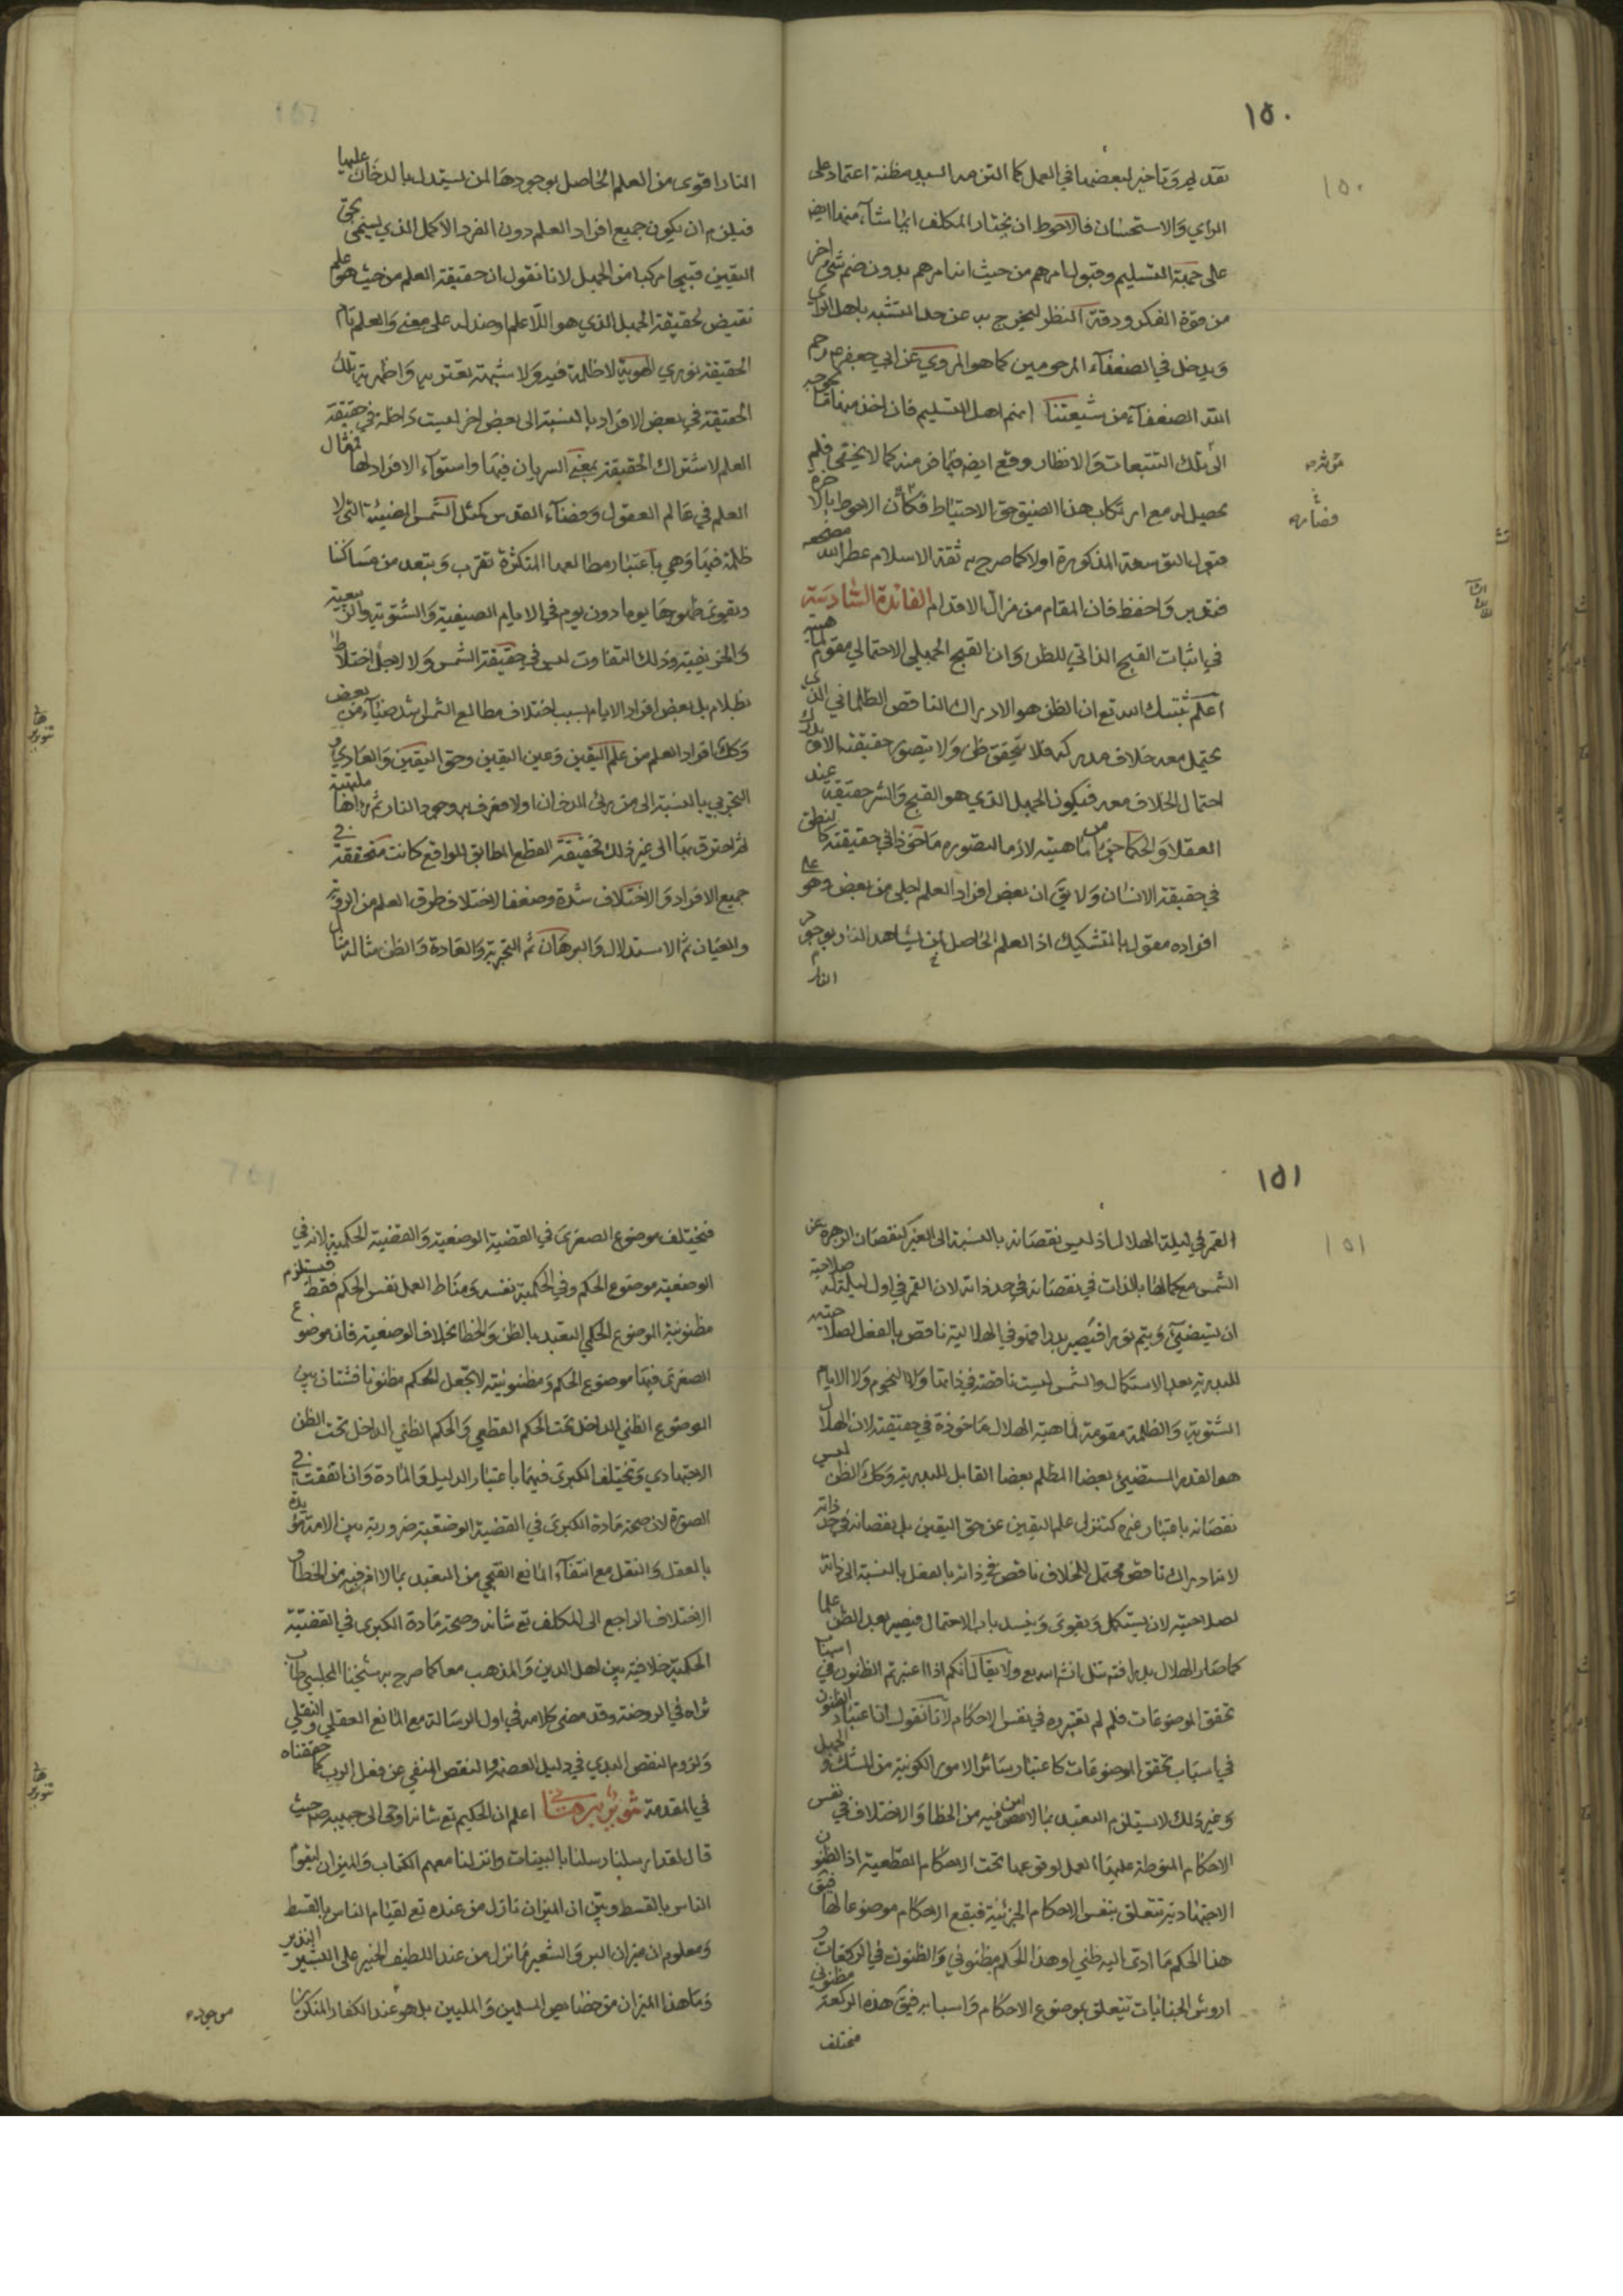 ١٥٠
تقديم وتاخير لبعضها في العمل كما التزمه السيد مظنة اعتماد على
الراي والاستحسان فالاحوط ان يختار المكلف ايها شاء منها ايضا
على جهة التسليم وقبول امرهم من حيث انه امرهم بدون ضم شيء اخر
من قوة الفكر ودقة النظر ليخرج به عن حد التشبه باهل الراي
ويدخل في الضعفاء المرحومين كما هو المروي عن ابي جعفر ع رحم
الله الضعفاء من شيعتنا انهم اهل التسليم فان اخذ
الى تلك التتبعات والانظار وقع ايضا فيما فر منه كما لا يخفى فلم
يحصل له مع ارتكاب هذا الضيق حق الاحتياط فكان الاحوط بالاخرة
قبول التوسعة المذكورة اولا كما صرح به ثقة الاسلام عطر الله مضجعه
فتدبر واحفظ فان المقام من مزال الاقدام الفائدة السادسة
في اثبات القبح الذاتي للظن وان القبح الجهلي الاحتمالي مقوم لماهيته
اعلم ثبتك الله تع ان الظن هو الادراك الناقص الظلماني الذي
يحتمل معه خلاف مدركه فلا يتحقق ظن ولا يتصور حقيقته الا
احتمال الخلاف معه فيكون الجهل الذي هو القبح والشر حقيقة عند
العقلا والحكما جزءا من ماهيته لازما لتصوره ماخوذا في حقيقته كالنطق
في حقيقة الانسان ولا يق ان بعض افراد العلم اجلى من بعض وهو على
افراده مقول بالتشكيك اذ العلم الحاصل لمن يشاهد النار بوجود
النار
النار اقوى من العلم الحاصل بوجودها لمن يستدل بالدخان عليها
فيلزم ان يكون جميع افراد العلم دون الفرد الاكمل الذي يسمى بحق
اليقين قبيحا مركبا من الجهل لانا نقول ان حقيقة العلم من حيث هو علم
نقيض لحقيقة الجهل الذي هو اللا علم او ضد له على معنى والعلم تام
الحقيقة نوري الهوية لا ظلمة فيه ولا شبهة تعتريه واظهرية تلك
الحقيقة في بعض الافراد بالنسبة الى بعض اخر ليست داخلة في حقيقة
العلم لاشتراك الحقيقة بمعنى السريان فيها واستواء الافراد لها فمثال
العلم في عالم العقول وفضاء القدس كمثل الشمس المضيئة التي لا
ظلمة فيها وهي باعتبار مطالعها المتكثرة تقرب وتبعد من مساكننا
ويقوى ظهورها يوما دون يوم في الايام الصيفية والشتوية والربيعية
والخريفية وذلك التفاوت ليس في حقيقة الشمس ولا لاجل اختلاط
بظلام بل بعض افراد الايام بسبب اختلاف مطالع الشمس اشد ضياء من بعض
وكك افراد العلم من علم اليقين وعين اليقين وحق اليقين والعادي و
التجربي بالنسبة الى من يرى الدخان اولا فعرف به وجود النار ثم راها ملتهبة
ثم احترق بها الى غير ذلك فحقيقة القطع المطابق للواقع كانت متحققة في
جميع الافراد والاختلاف شدة وضعفا لاختلاف طرق العلم من الروية
والعيان ثم الاستدلال والبرهان ثم التجربة والعادة والظن مثاله مثال
١٥١
القمر في ليلة الهلال اذ ليس نقصانه بالنسبة الى الغير كنقصان الزهرة عن
الشمس مع كمالها بالذات في نقصانه في حد ذاته لان القمر في اول ليلة له صلاحية
ان يستضيء ويتم نورا فيصير بدرا فهو في الهلالية ناقص بالفعل لصلاحيته
للبدرية بعد الاستكمال والشمس ليست ناقصة في ذاتها ولا النجوم ولا الايام
الشتوية والظلمة مقومة لماهية الهلال ماخوذة في حقيقته لان الهلال
هو القدر المستضيء بعضا المظلم بعضا القابل للبدرية وكك الظن ليس
نقصانه باعتبار غيره كتنزل علم اليقين عن حق اليقين بل نقصانه في حد ذاته
لانه ادراك ناقص محتمل للخلاف ناقص في ذاته بالفعل بالنسبة الى ذاته
لصلاحيته لان يستكمل ويقوى وينسد باب الاحتمال فيصير بعد الظن علما
كما صار الهلال بدرا فتمثل انش الله تع ولا يقال انكم اذا اعتبرتم الظنون في اسباب
تحقق الموضوعات فلم لم تعتبروه في نفس الاحكام لانا نقول ان اعتبار الظنون
في اسباب تحقق الموضوعات كاعتبار سائر الامور الكونية من الشك والجهل
وغير ذلك لا يستلزم التعبد بما لا امن فيه من الخطا والاختلاف في نفس
الاحكام المنوطة عليها العمل لوقوعها تحت الاحكام القطعية اذ الظنون
الاجتهادية تتعلق بنفس الاحكام الجزئية فيقع الاحكام موضوعا لها فيق
هذا الحكم ما ادى اليه ظني او هذا الحكم مظنوني والظنون في الركعات و
اروش الجنايات تتعلق بموضوع الاحكام واسبابه فيق هذه الركعة مظنوني
مختلف
فيختلف موضوع الصغرى في القضية الوضعية والقضية الحكمية لانه في
الوضعية موضوع الحكم وفي الحكمية نفسه ومناط العمل نفس الحكم فقط فيستلزم
مظنونية الموضوع الحكمي التعبد بالظن والخطا بخلاف الوضعية فان موضوع
الصغرى فيها موضوع الحكم ومظنونيته لا تجعل الحكم مظنونا فشتان بين
الموضوع الظني الداخل تحت الحكم القطعي والحكم الظني الداخل تحت الظن
الاجتهادي وتختلف الكبرى فيها باعتبار الدليل والمادة وان اتفقت في
الصورة لان صحة مادة الكبرى في القضية الوضعية ضرورية بين الامة مؤيدة
بالعقل والنقل مع انتفاء المانع القبحي من التعبد بما لا امن فيه من الخطا و
الاختلاف الراجع الى المكلف تع شانه وصحة مادة الكبرى في القضية
الحكمية خلافية بين اهل الدين والمذهب معا كما صرح به شيخنا المجلسي طاب
ثراه في الروضة وقد مضى كلامه في اول الرسالة مع المانع العقلي والنقلي
ولزوم النقص البدي في دليل العصمة والنقص المنفي عن فعل الرب كما حققناه
في المقدمة اعلم ان الحكيم تع شانه اوحى الى حبيبه ص حيث
قال لقد ارسلنا رسلنا بالبينات وانزلنا معهم الكتاب والميزان ليقوم
الناس بالقسط وبين ان الميزان نازل من عنده تع لقيام الناس بالقسط
ومعلوم ان ميزان البر والشعير ما نزل من عند اللطيف الخبير على البشير النذير
وما هذا الميزان من خصايص المسلمين والمليين بل هو عند الكفار المنكرين